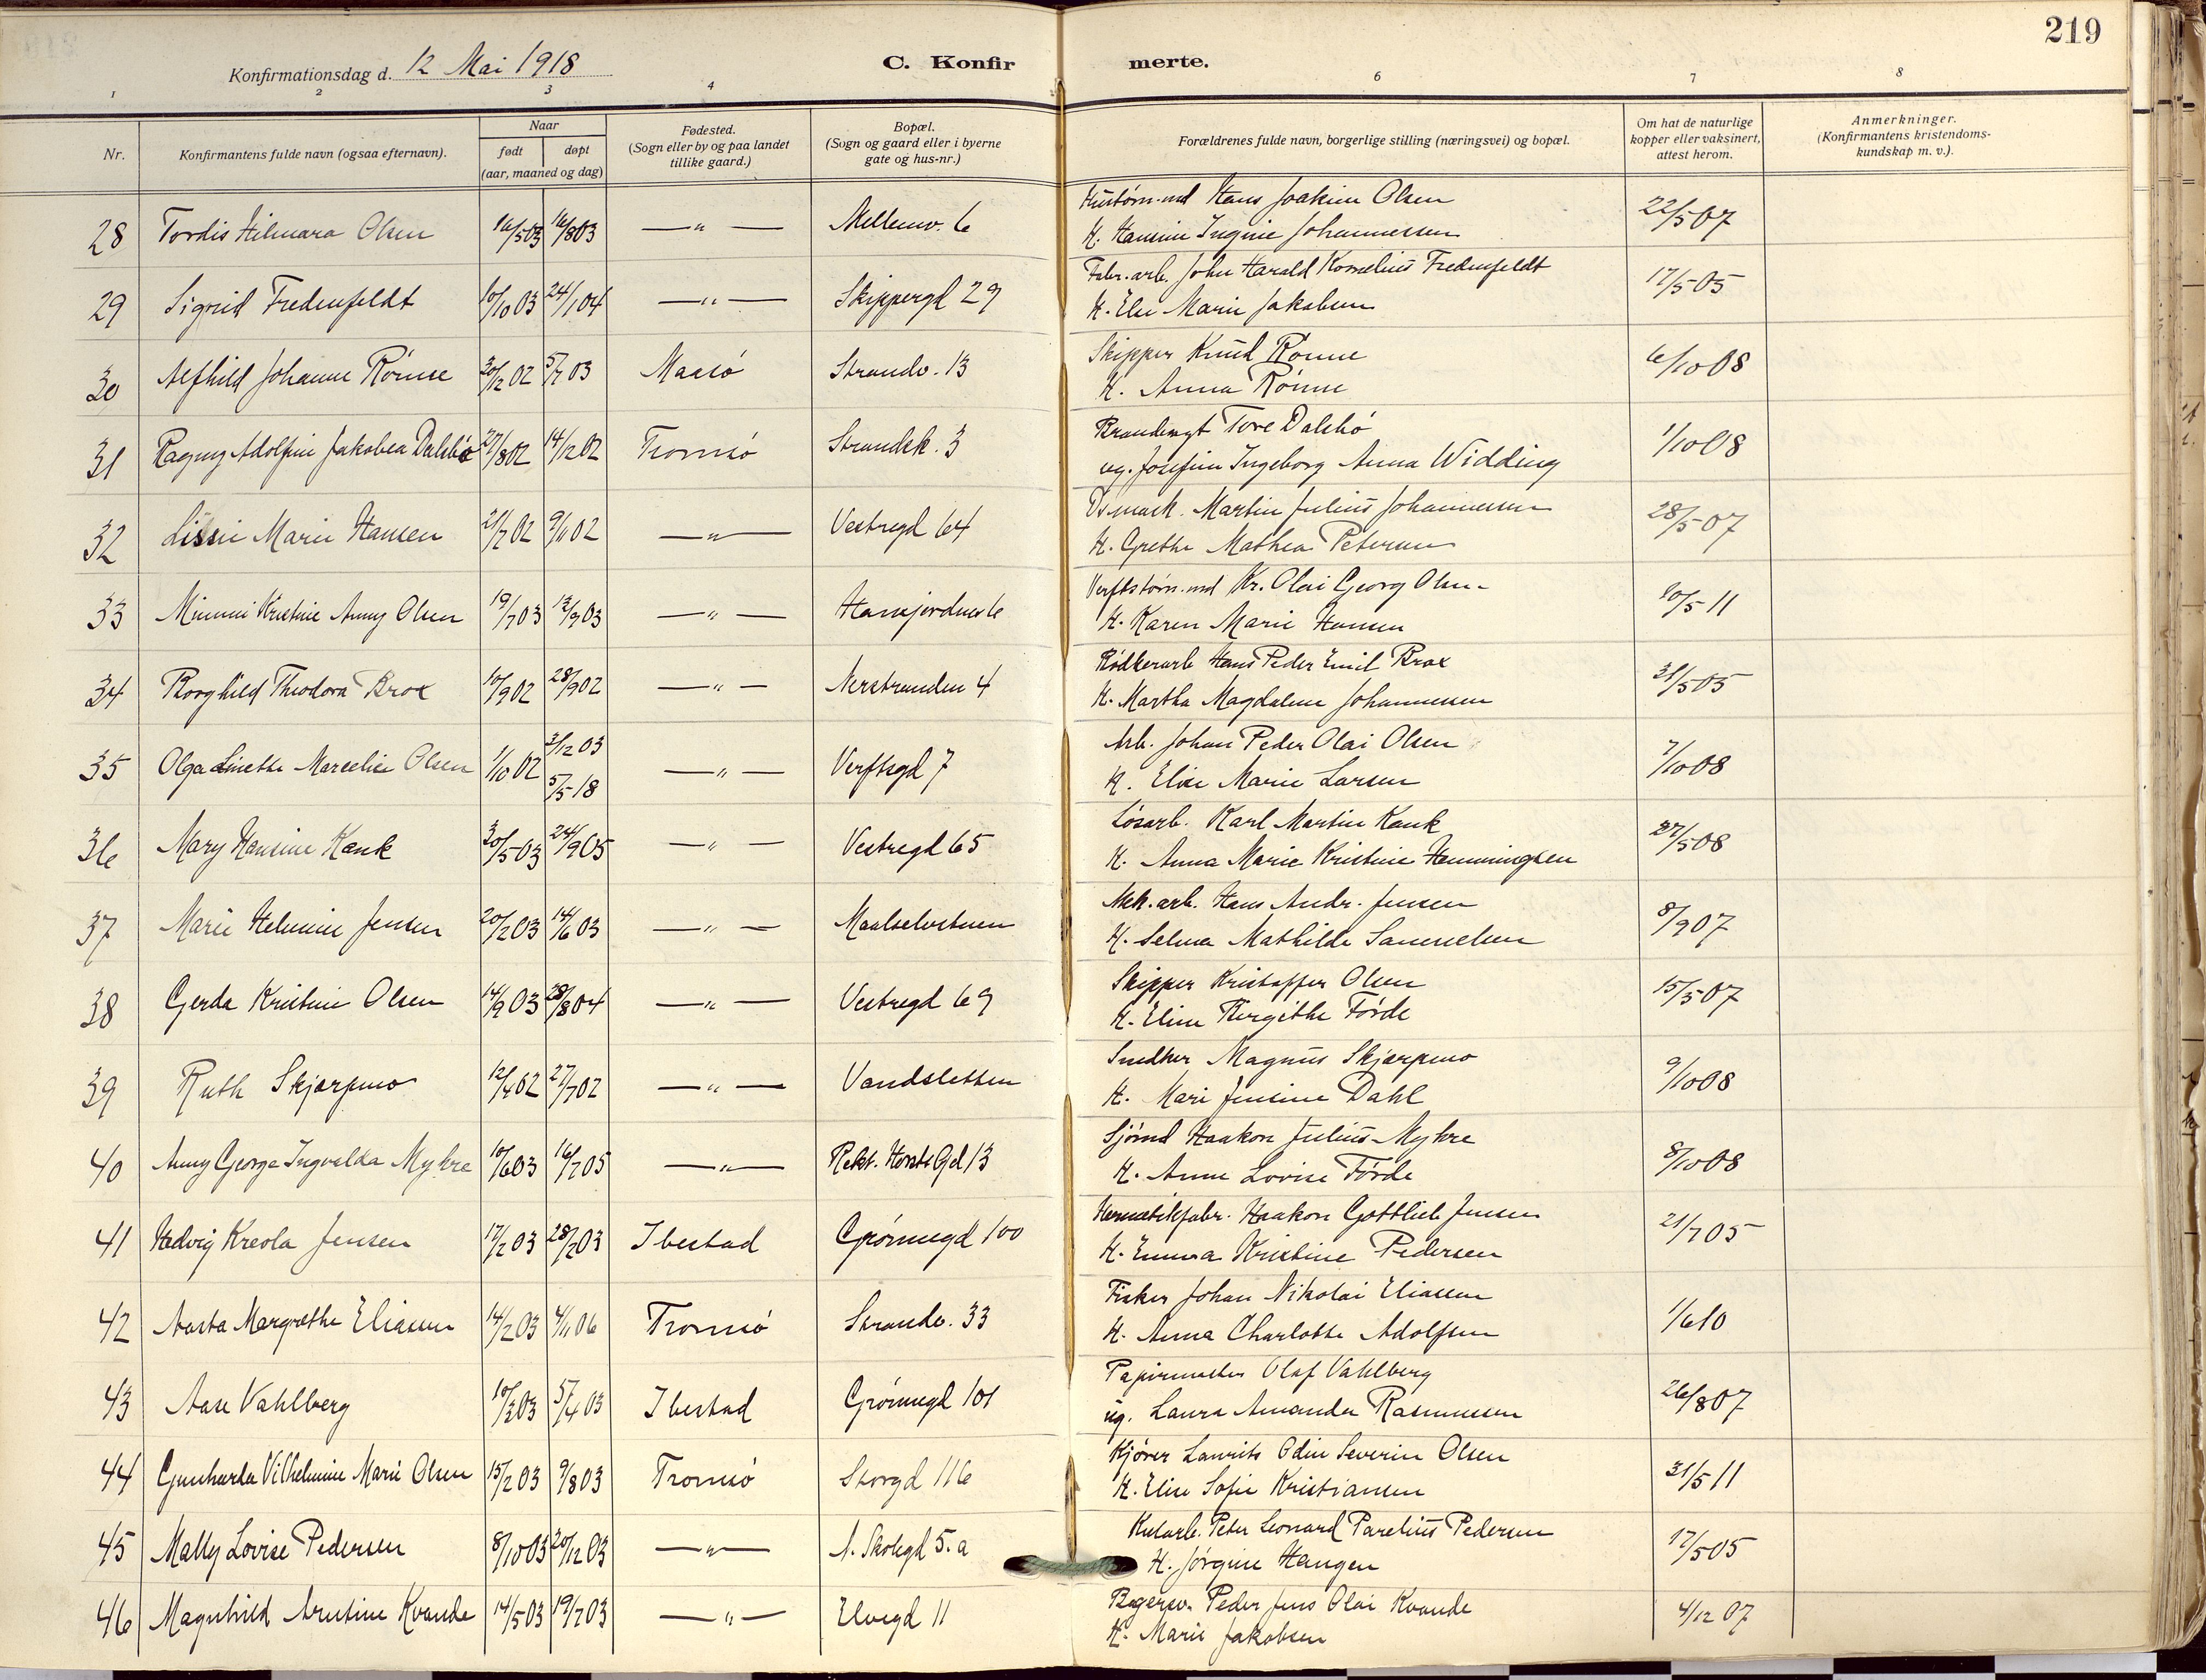 219
Konfirmationsdag d. 12 Mai 1918
C. Konfir merte.
1 2 3 4 6 7 8
Nr.
Konfirmantens fulde navn (ogsaa efternavn).
Naar
født døpt
(aar, maaned og dag)
Fødested.
(Sogn eller by og paa landet
tillike gaard.)
Bopæl.
(Sogn og gaard eller i byerne
gate og hus-nr.)
Forældrenes fulde navn, borgerlige stilling (næringsvei) og bopæl.
Om hat de naturlige
kopper eller vaksinert,
attest herom.
Anmerkninger.
(Konfirmantens kristendoms-
kundskap m. v.).
28 Tordis Hilmara Olsen 16/5 03 16/8 03 —"— Mellemv. 6 Hustøm.md Hans Joakim Olsen 22/5 07
H. Hansine Ingine Johannessen
29 Sigrid Fredenfeldt 10/10 03 24/1 04 —"— Skippergd 29 Fabr.arb. John Harald Kornelius Fredenfeldt 17/5 05
H. Else Marie Jakobsen
30 Alfhild Johanne Rønne 30/12 02 5/7 03 Maasø Strandv. 13 Skipper Knud Rønne 6/10 08
H. Anna Rønne
31 Ragny Adolfine Jakobea Dalsbø 27/8 02 14/12 02 Tromsø Strandsk. 3 Tore Dalsbø 1/10 08
ug. Josefine Ingeborg Anna Widding
32 Lissie Marie Hansen 21/7 02 9/11 02 —"— Vestregd 64 Martin Julius Johannessen 28/5 07
H. Grethe Mathea Petersen
33 Mimmi Kristine Anny Olsen 19/7 03 13/9 03 —"— Hansjordnes 6 Verftstøm.md Kr. Olai Georg Olsen 20/5 11
H. Karen Marie Hansen
34 Borghild Theodora Brox 10/9 02 28/9 02 —"— Nerstranden 4 Bødkerarb Hans Peder Emil Brox 31/5 05
H. Martha Magdalene Johannessen
35 Olga Linette Marcelie Olsen 1/10 02 3/12 03 —"— Verftsgd 7 Arb. Johan Peder Olai Olsen 7/10 08
5/5 18
H. Elise Marie Larsen
36 Mary Hansine Kank 30/5 03 24/9 05 —"— Vestregd 65 Løsarb. Karl Martin Kank 27/5 08
H. Anna Marie Kristine Hemmingsen
37 Marie Helmine Jensen 20/2 03 14/6 03 —"— Maalselvstuen Mek.arb. Hans Andr. Jensen 8/9 07
H. Selma Mathilde Samuelsen
38 Gerda Kristine Olsen 14/9 03 28/8 04 —"— Vestregd 69 Skipper Kristoffer Olsen 15/5 07
H. Eline Bergithe Førde
39 Ruth Skjærpmo 12/4 02 27/7 02 —"— Vandsletten Snedker Magnus Skjærpmo 9/10 08
H. Mari Jensine Dahl
40 Anny George Ingvalda Myhre 10/6 03 16/7 05 —"— Rekt. Horsts Gd 13 Sjømd Haakon Julius Myhre 8/10 08
H. Anne Lovise Førde
41 Hedvig Kreola Jensen 17/2 03 28/2 03 Ibestad Grønnegd 100 Hermetikfabr. Haakon Gottlieb Jensen 21/7 05
H. Emma Kristine Pedersen
42 Aasta Margrethe Eliassen 14/2 03 4/11 06 Tromsø Strandv. 33 Fisker Johan Nikolai Eliassen 1/6 10
H. Anna Charlotte Adolfsen
43 Aase Vahlberg 10/3 03 5/4 03 Ibestad Grønnegd 101 Olaf Vahlberg 26/8 07
ug. Laura Amanda Rasmussen
44 Gunharda Vilhelmine Marie Olsen 15/2 03 9/8 03 Tromsø Storgd 116 Kjører Laurits Odin Severin Olsen 31/5 11
H. Elise Sofie Kristiansen
45 Mally Lovise Pedersen 8/10 03 20/12 03 —"— N. Skolegd 5.a Kularb. Peter Leonard Parelius Pedersen 17/5 05
H. Jørgine Haugen
46 Magnhild Arntine Kvande 14/5 03 19/7 03 —"— Elvegd 11 Bagersv. Peder Jens Olai Kvande 4/12 07
H. Marie Jakobsen